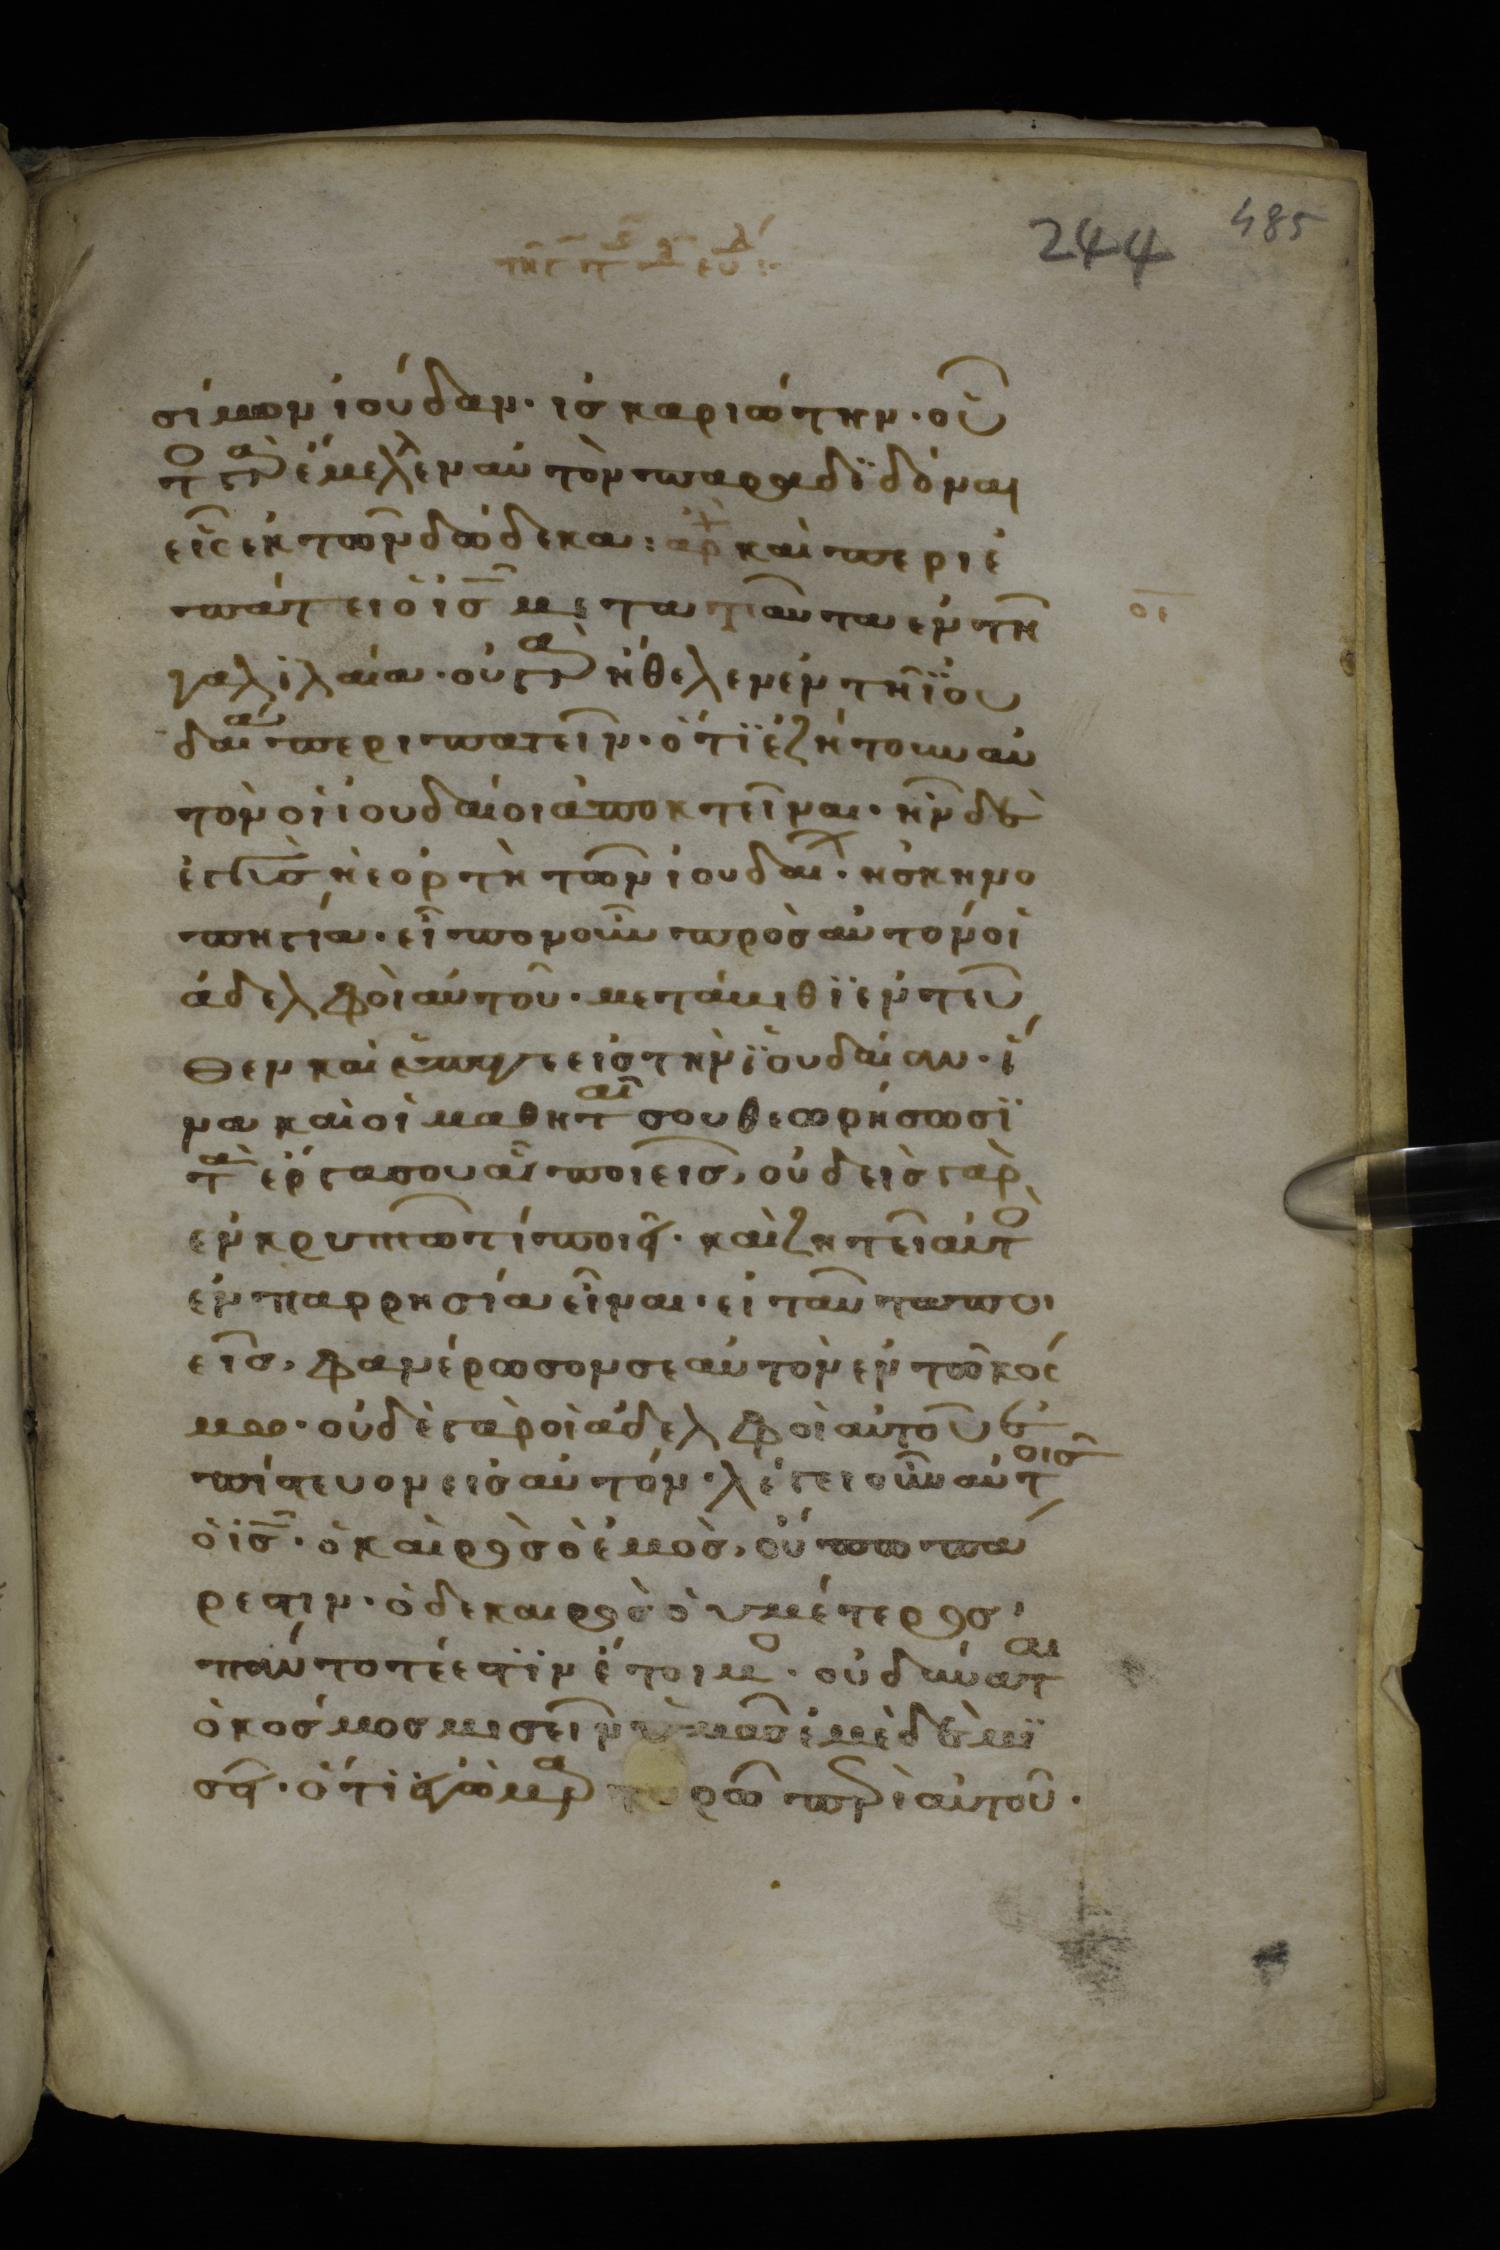 244 485
σίμων ἰούδαν· ἰσκαριώτην· οὗ
τος γὰρ ἔμελλεν αὐτὸν παραδϊδόναι
εἷς ἐκ τῶν δώδεκα: ἀρχ καὶ περιε
πάτει ὁ ις μετα ταῦτα ἐν τῆ
οε
γαλϊλαία· οὐ γὰρ ἤθελεν ἐν τῆ ϊου
δαία περιπατεῖν· ὅτϊ ἐζήτουν αὐ
τὸν οἱ ἰουδαίοι ἀποκτεῖναι· ἦν δὲ
ἐγγὺς ἡ ἑορτὴ τῶν ἰουδαίων· ἡ σκηνο
πηγία· εἶπον οὖν πρὸς αὐτὸν οἱ
ἀδελφοὶ αὐτοῦ· μετάβιθϊ ἐντεῦ
θεν καὶ ὕπαγε εἰς τὴν ϊουδαίαν· ἵ
να καὶ οἱ μαθηταῖ σου θεωρήσωσϊ
τὰ ἔργα σου ἃ ποιεῖς, οὐδεὶς γὰρ
ἐν κρυπτῶ τί ποιεῖ· καὶ ζητεῖ αὐτὸ
ἐν παρρησία εἶναι· εἰ ταῦτα ποι
εῖς, φανέρωσον σεαὐτὸν ἐν τῶ κόσ
μω· οὐδὲ γὰρ οἱ ἀδελφοὶ αὐτοῦ ἐ
πίστευον εἰς αὐτόν· λέγει οὖν αὐτοῖς
ὁ ις· ὁ καιρὸς ὁ ἐμὸς, οὔπω πά
ρεστιν· ὁ δε καιρὸς ὁ ὑμέτερος
πάντοτέ εστϊν ἕτοιμος· οὐ δύναται
ὁ κόσμος μισεῖν ὑμᾶς ἐμὲ δὲ μϊ
σεῖ· ὅτϊ ἐγὼ μαρτυρῶ περὶ αὐτοῦ·